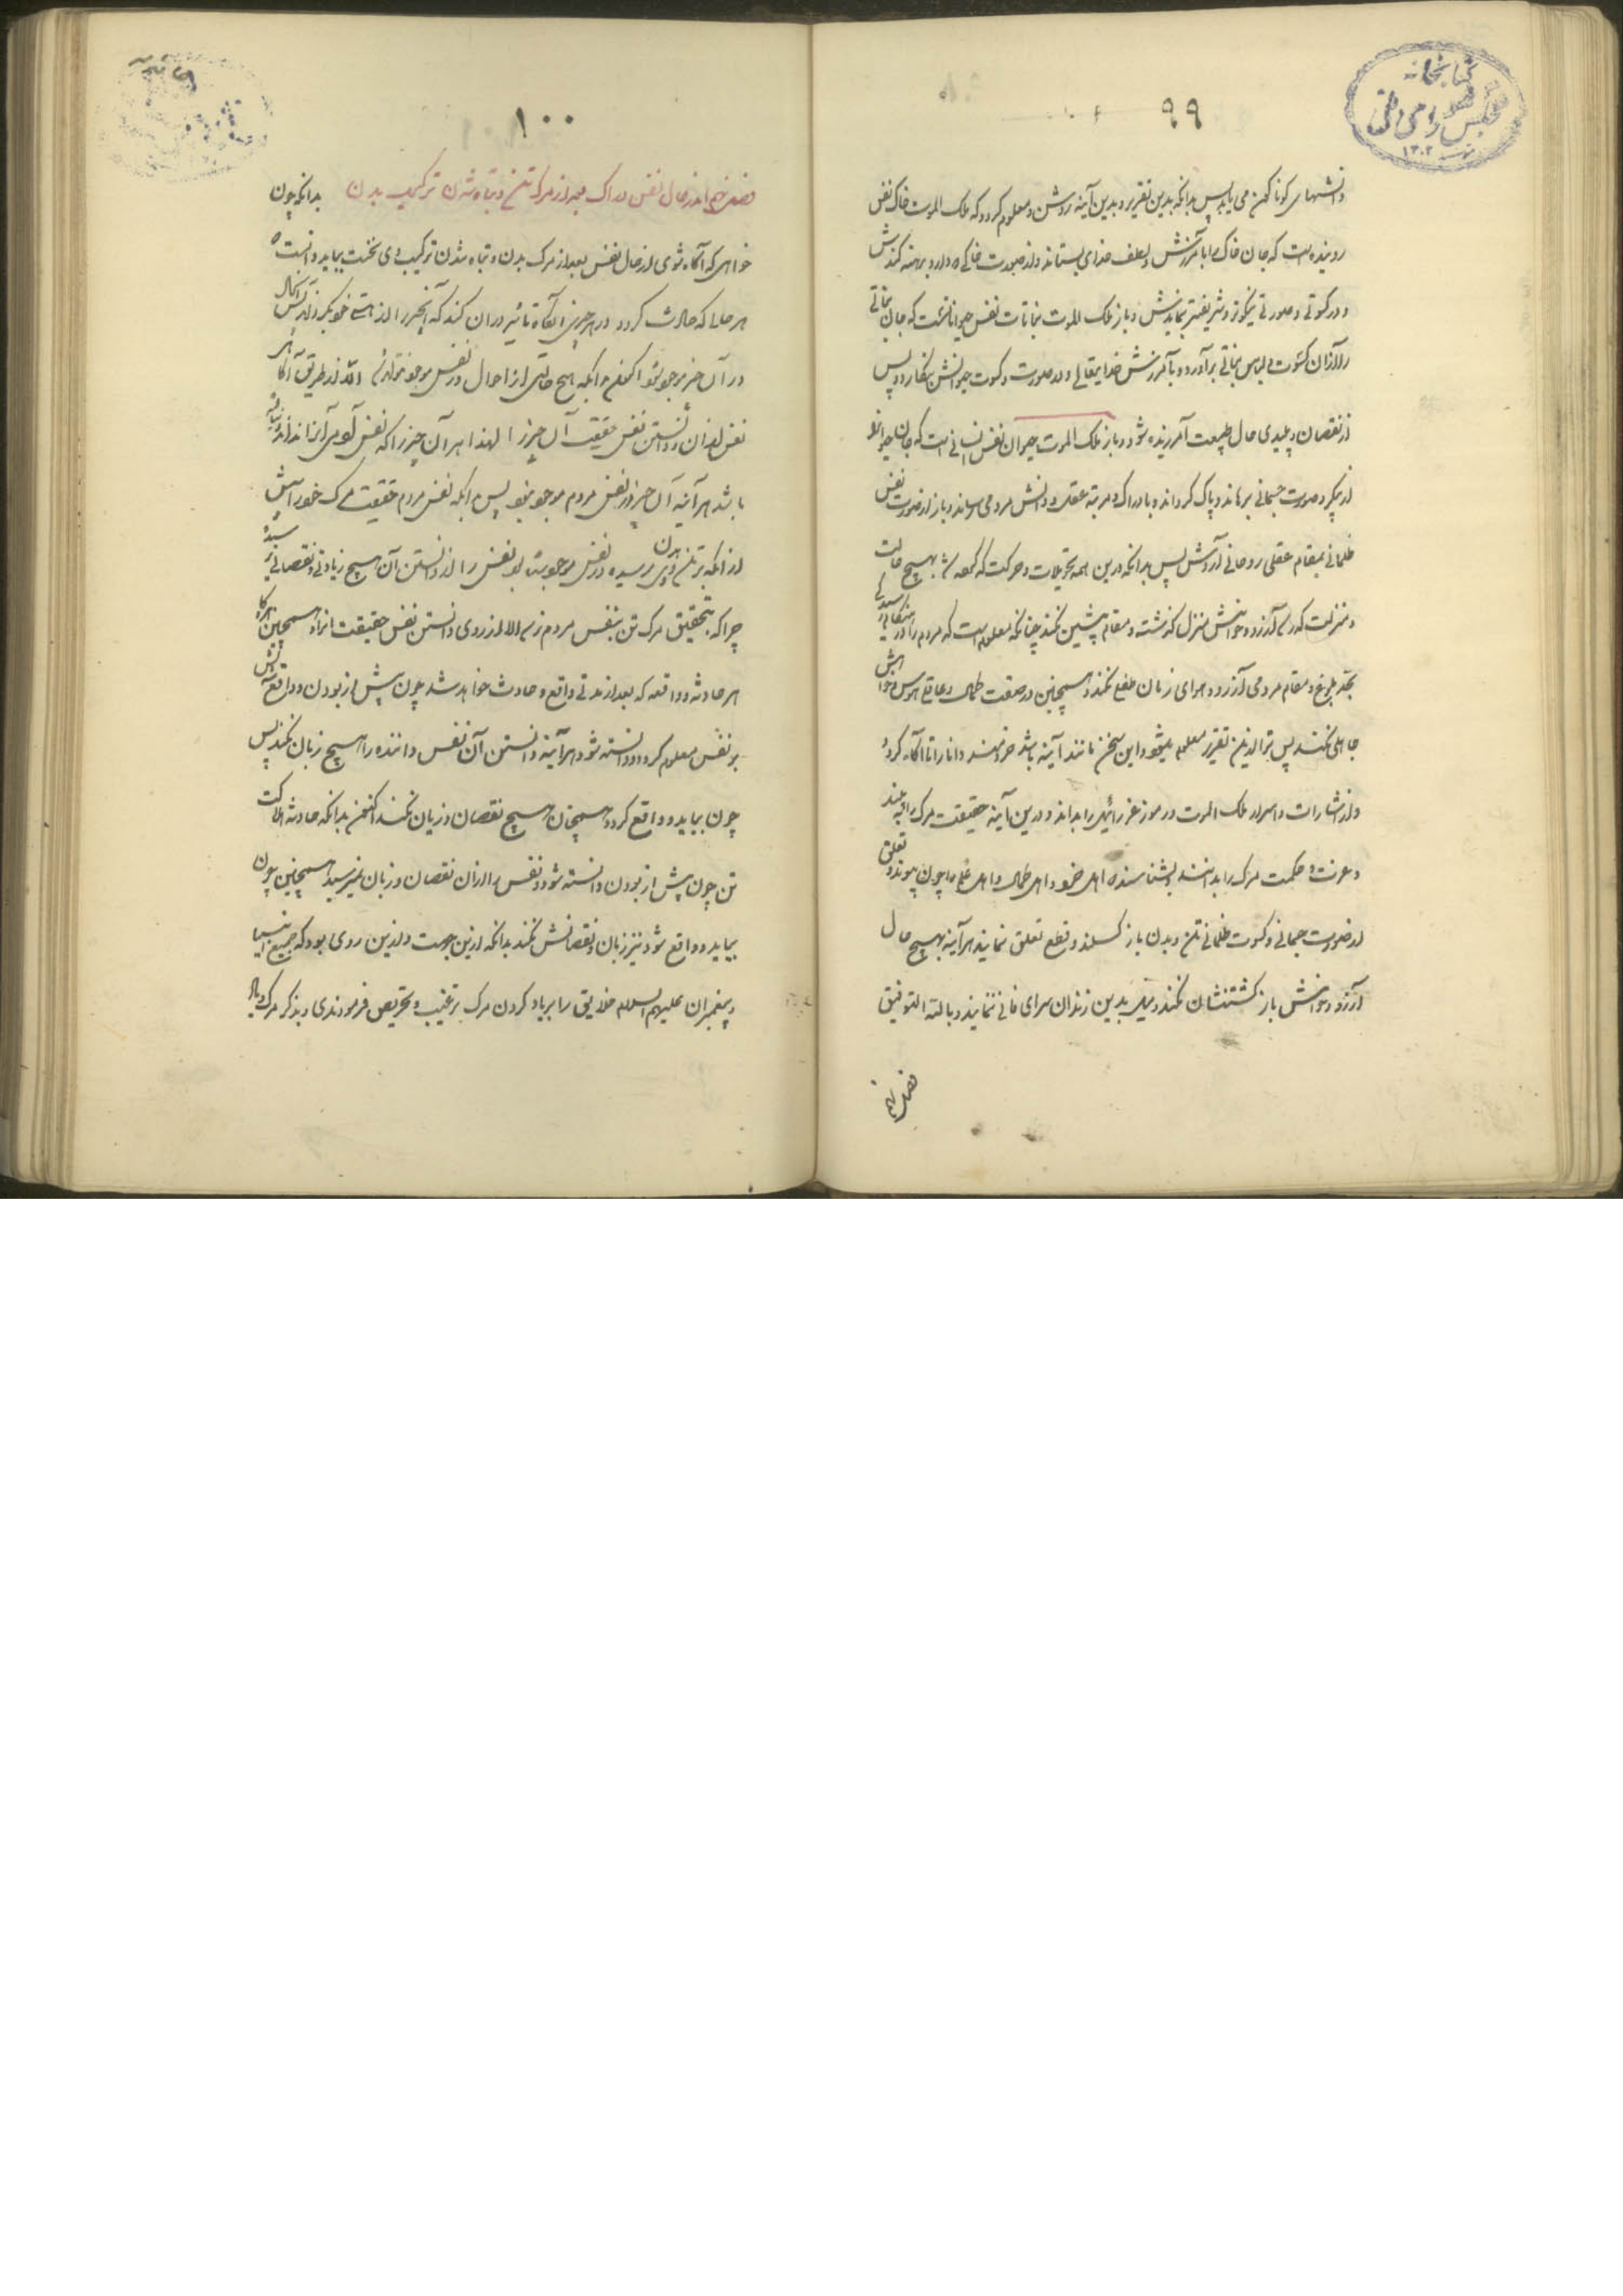 کتابخانه
مجلس شورای ملی
۱۳۰۲
۹۹
دانشهای گوناگون می یابد پس بدانکه بدین تقریر و بدین آینه روشن و معلوم گردد که ملک الموت خاک نفس
روینده است که جان خاک را بآمرزش و لطف خدای بستاند و از صورت خاکی
و در کسوتی و صورتی نیکوتر و شریفتر نمایدش و باز ملک الموت نباتات نفس حیوانیست که جان نباتی
را از آن کسوت و لباس نباتی برآورد و بآمرزش خدایتعالی در صورت و کسوت حیوانیش بنگارد پس
از نقصان و پلیدی حال طبیعت آمرزیده شود و باز ملک الموت حیوان نفس انسانی است که جان حیوانی
از پیکر و صورت جسمانی برهاند و پاک گرداند و بادراک و مرتبه عقلی و دانش مردمی رساند و باز از صورت نفس
ظلمانی بمقام عقلی روحانی آردش پس بدانکه درین همه تحویلات و حرکت که گفته شد بهیچ حالت
و منزلت که رسد آرزو و خواهش منزل گذشته و مقام پیشین نکند چنانکه معلوم است که مردم را در هنگام رسیدگی
بحد بلوغ و مقام مردمی آرزو و هوای زمان طفلی نکند و همچنین در صفت کمال و عاقلی هوس و خواهش
جاهلی نکند پس ترا ازین تقریر معلوم میشود و این سخن مانند آینه باشد خردمند دانا را تا آگاه گردد
و از اشارات و اسرار ملک الموت و رموز عزرائیل را بداند و درین آینه حقیقت مرگ را ببیند
و معرفت و حکمت مرگ را بدانند و بشناسند که اهل خرد و اهل کمال و اهل علم را چون پیوند و تعلق
از صورت جسمانی و کسوت ظلمانی تن و بدن باز گسلند و قطع تعلق نمایند هرآینه بهیچ حال
آرزو و خواهش باز گشتنشان نکند و میل بدین زندان سرای فانی ننمایند و بالله التوفیق
فصل پنجم
۱۰۰
فصل پنجم اندر حال نفس دراک بعد از مرگ تن و تباه شدن ترکیب بدن بدانکه چون
خواهی که آگاه شوی از حال نفس بعد از مرگ بدن و تباه شدن ترکیب وی نخست بباید دانست که
هر حالی که حادث گردد در هر چیزی آنگاه تاثیر در آن کند که آنچیز را از هستی خود بگرداند پس آنحال
در آن چیز موجود شود اکنون بدانکه هیچ حالتی از احوال در نفس موجود نتواند شد الا از طریق آگاهی
نفس از آن و دانستن نفس حقیقت آن چیز را لهذا هر آن چیز را که نفس آدمی آنرا ندانسته
باشد هرآینه آن چیز در نفس مردم موجود نبود پس بدانکه نفس مردم حقیقت مرگ خود را پیش
از آنکه بر تن وی بدن رسیده در نفس موجودست بود نفس را از دانستن آن هیچ زیادتی و نقصانی نرسد
چرا که بتحقیق مرگ تن بنفس مردم نرسد الا از روی دانستن نفس حقیقت آنرا و همچنین هرگاه
هر حادثه و واقعه که بعد از مدتی واقع و حادث خواهد شد چون پیش از بودن و واقع شدنش
بر نفس معلوم گردد و دانسته شود هرآینه دانستن آن نفس داننده را هیچ زیان نکند پس
چون بیاید و واقع گردد همچنان هیچ نقصان و زیان نکند اکنون بدانکه حادثه هلاکت
تن چون پیش از بودن دانسته شود و نفس را از آن نقصان و زیان نمیرسد همچنین چون
بیاید و واقع شود نیز زیان و نقصانش نکند بدانکه ازین جهت و ازین روی بود که جمیع انبیا
و پیغمبران علیهم السلام خلایق را بر یاد کردن مرگ ترغیب و تحریص فرمودندی و بذکر مرگ و یاد